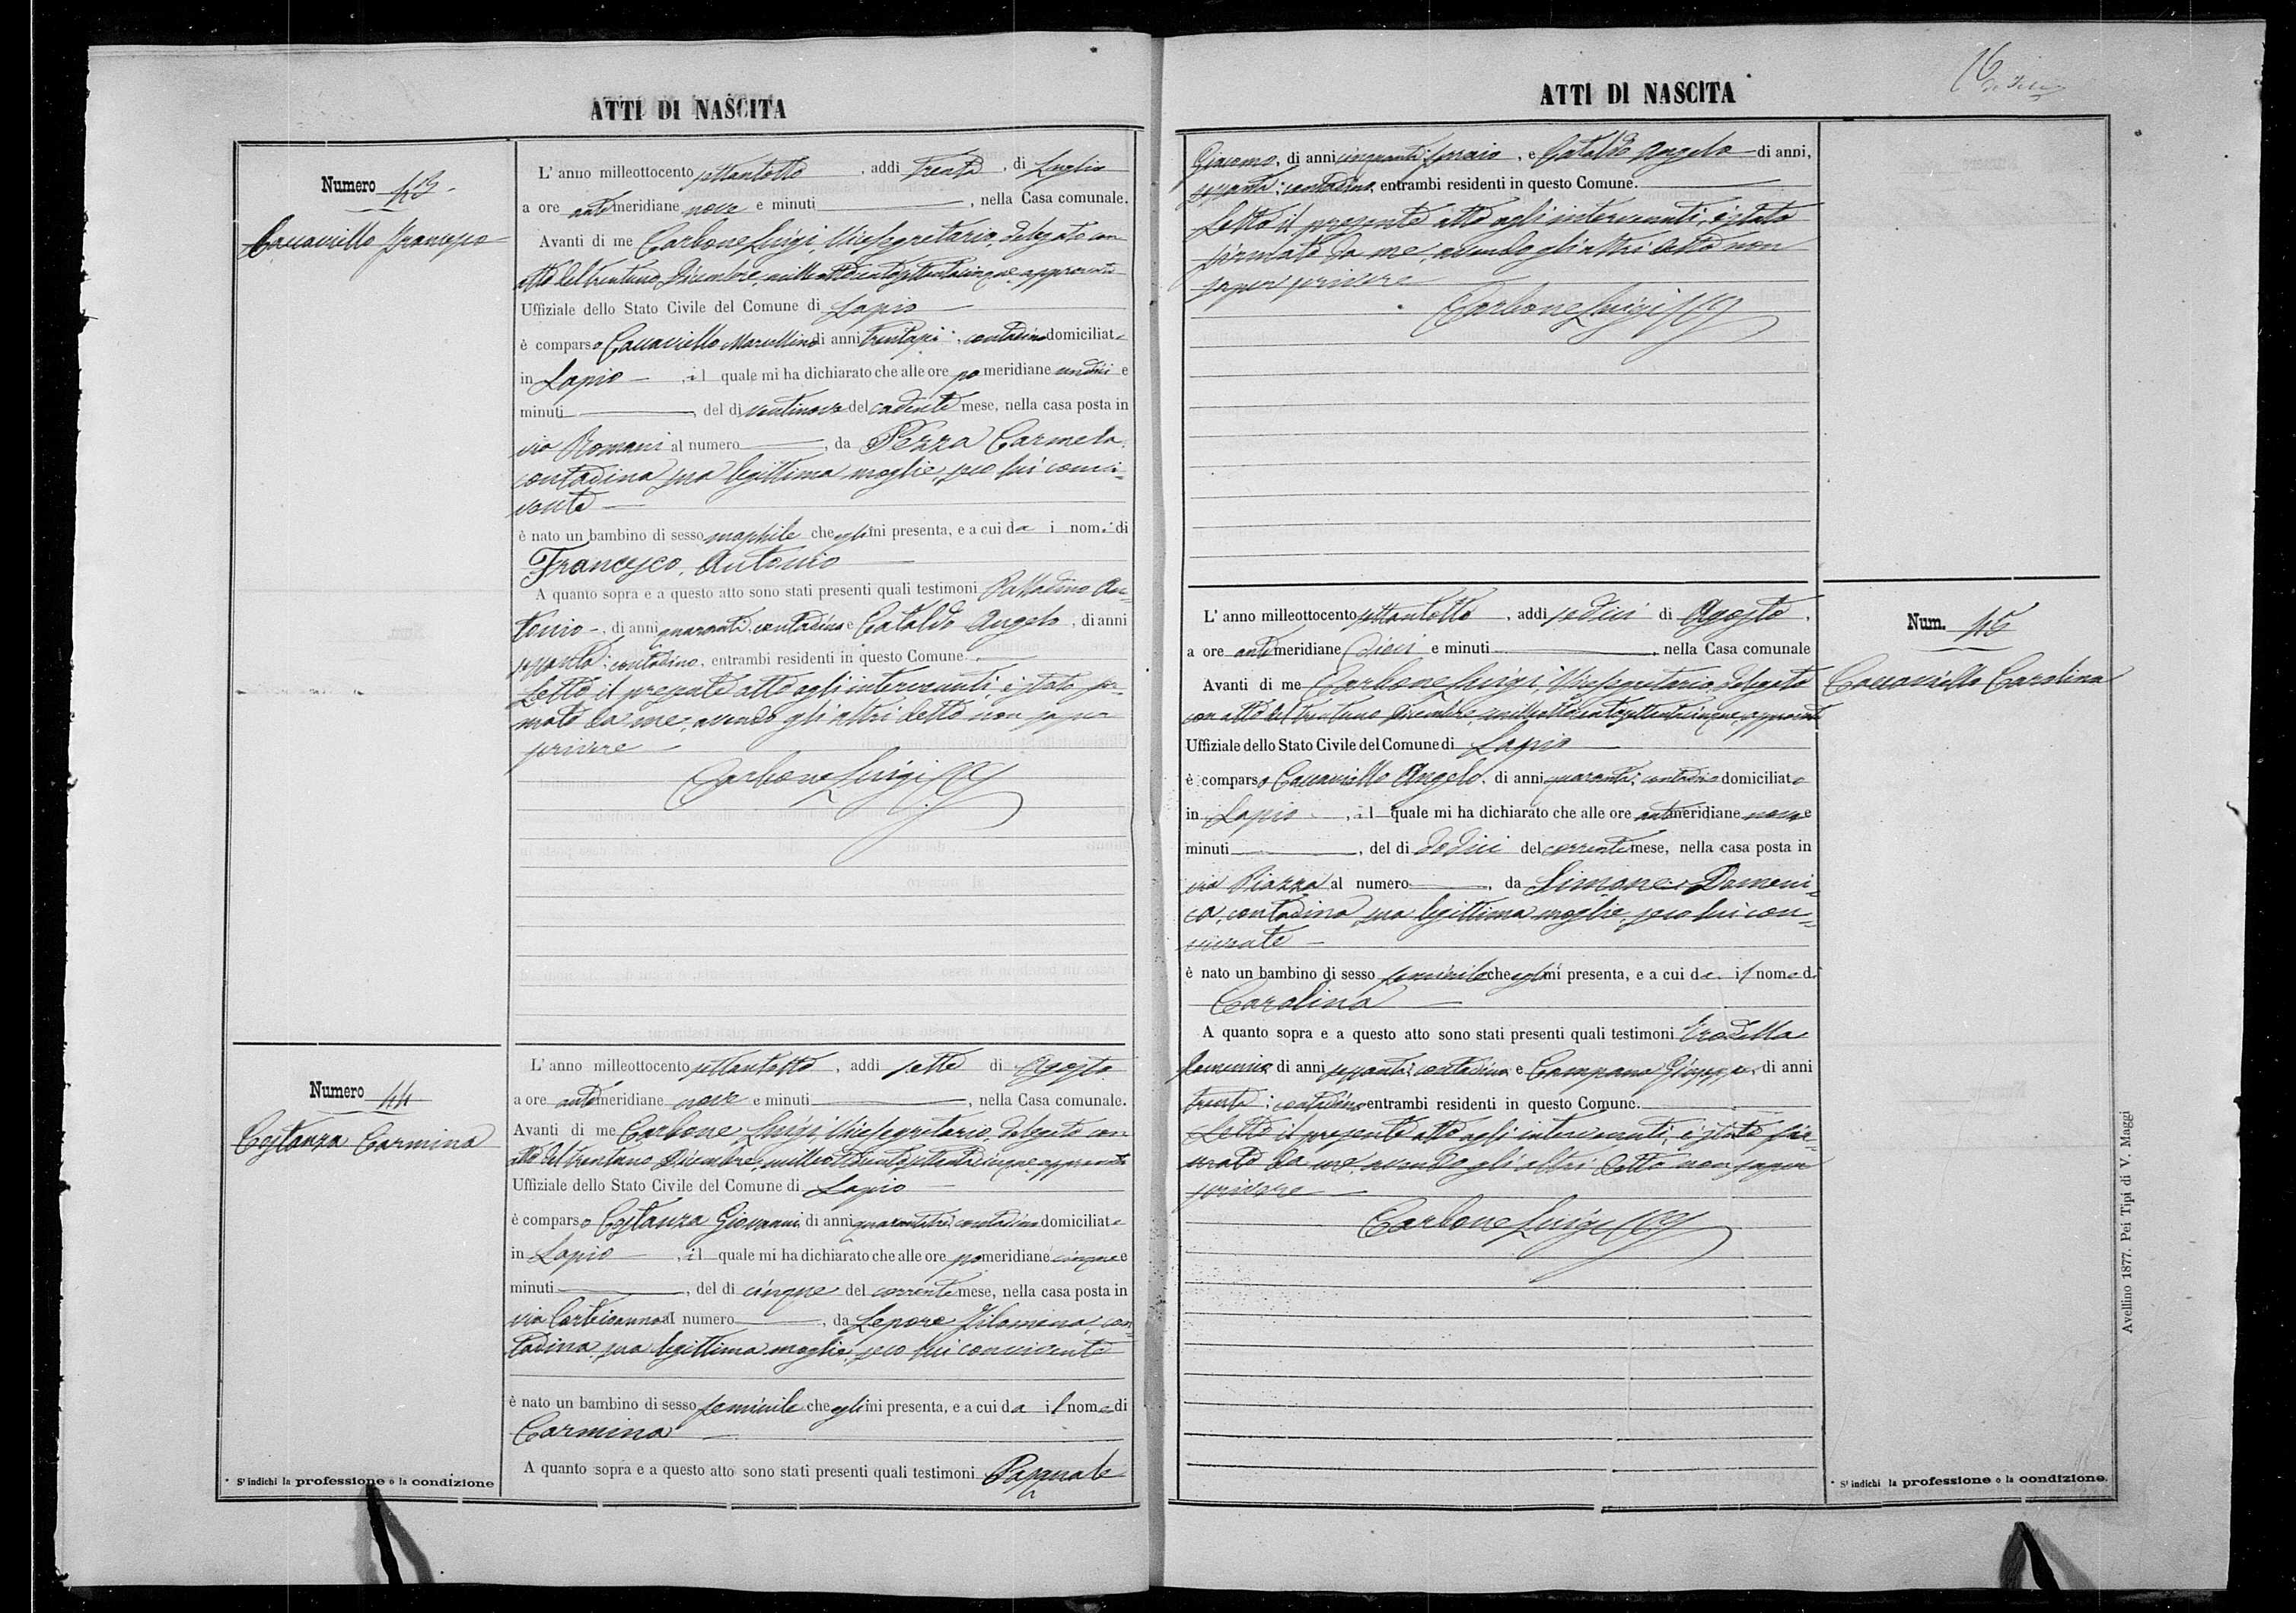 ATTI DI NASCITA
Numero 43
Caccaviello Francesco
L' anno milleottocento settantotto, addi trenta, di Luglio
a ore antimeridiane nove e minuti, nella Casa comunale.
Avanti di me Carbone Luigi, Vicesegretario, delegato con
atto del trentuno Dicembre, milleottocentosettantacinque, approvato
Uffiziale dello Stato Civile del Comune di Lapio
è comparso Caccaviello Marcellino di anni trentasei, contadino domiciliato
in Lapio, il quale mi ha dichiarato che alle ore pomeridiane undici e
minuti, del di ventinove del cadente mese, nella casa posta in
via Romani al numero, da Pezza Carmela
contadina sua legittima moglie, seco lui convi-
vente
è nato un bambino di sesso maschile che egli mi presenta, e a cui da i nomi di
Francesco, Antonio
A quanto sopra e a questo atto sono stati presenti quali testimoni Palladino An-
tonio, di anni quaranta, contadino e Cataldo Angelo, di anni
sessanta, contadino, entrambi residenti in questo Comune.
Letto il presente atto agli intervenuti, è stato fir-
mato da me, avendo gli altri detto non saper
scrivere
Carbone Luigi
Numero 44
Costanza Carmina
L' anno milleottocento settantotto, addi sette di Agosto
a ore antimeridiane nove e minuti, nella Casa comunale.
Avanti di me Carbone Luigi, Vicesegretario, delegato con
atto del trentuno Dicembre, milleottocentosettantacinque, approvato
Uffiziale dello Stato Civile del Comune di Lapio
è comparso Costanza Giovanni, di anni quarantatre, contadino domiciliato
in Lapio, il quale mi ha dichiarato che alle ore pomeridiane cinque e
minuti, del di cinque del corrente mese, nella casa posta in
via al numero, da Lepore Filomena, con-
tadina, sua legittima moglie, seco lui convivente
è nato un bambino di sesso feminile che egli mi presenta, e a cui da il nome di
Carmina
A quanto sopra e a questo atto sono stati presenti quali testimoni Pasquale
* S' indichi la professione o la condizione
ATTI DI NASCITA
16
Giacomo, di anni cinquanta, sarraio, e Cataldo Angelo di anni,
sessanta, contadino, entrambi residenti in questo Comune.
Letto il presente atto agli intervenuti, è stato
firmato da me, avendo gli altri detto non
saper scrivere
Carbone Luigi
Num. 45
Caccaviello Carolina
L' anno milleottocento settantotto, addi sedici di Agosto,
a ore antimeridiane dieci e minuti, nella Casa comunale
Avanti di me Carbone Luigi, Vicesegretario, delegato
con atto del trentuno Dicembre, milleottocentosettantacinque, approvato
Uffiziale dello Stato Civile del Comune di Lapio
è comparso Caccaviello Angelo, di anni quaranta, contadino domiciliato
in Lapio, il quale mi ha dichiarato che alle ore antimeridiane nove e
minuti, del di dodici del corrente mese, nella casa posta in
via Piazza al numero, da Simone Domeni-
ca, contadina sua legittima moglie, seco lui con-
vivente
è nato un bambino di sesso feminile che egli mi presenta, e a cui da il nome di
Carolina
A quanto sopra e a questo atto sono stati presenti quali testimoni Trodella
di anni sessanta, contadino e Campano Giuseppe, di anni
trenta, contadino entrambi residenti in questo Comune.
Letto il presente atto agli intervenuti, è stato fir-
mato da me, avendo gli altri detto non saper
scrivere
Carbone Luigi
* S' indichi la professione o la condizione.
Avellino 1877. Pei Tipi di V. Maggi